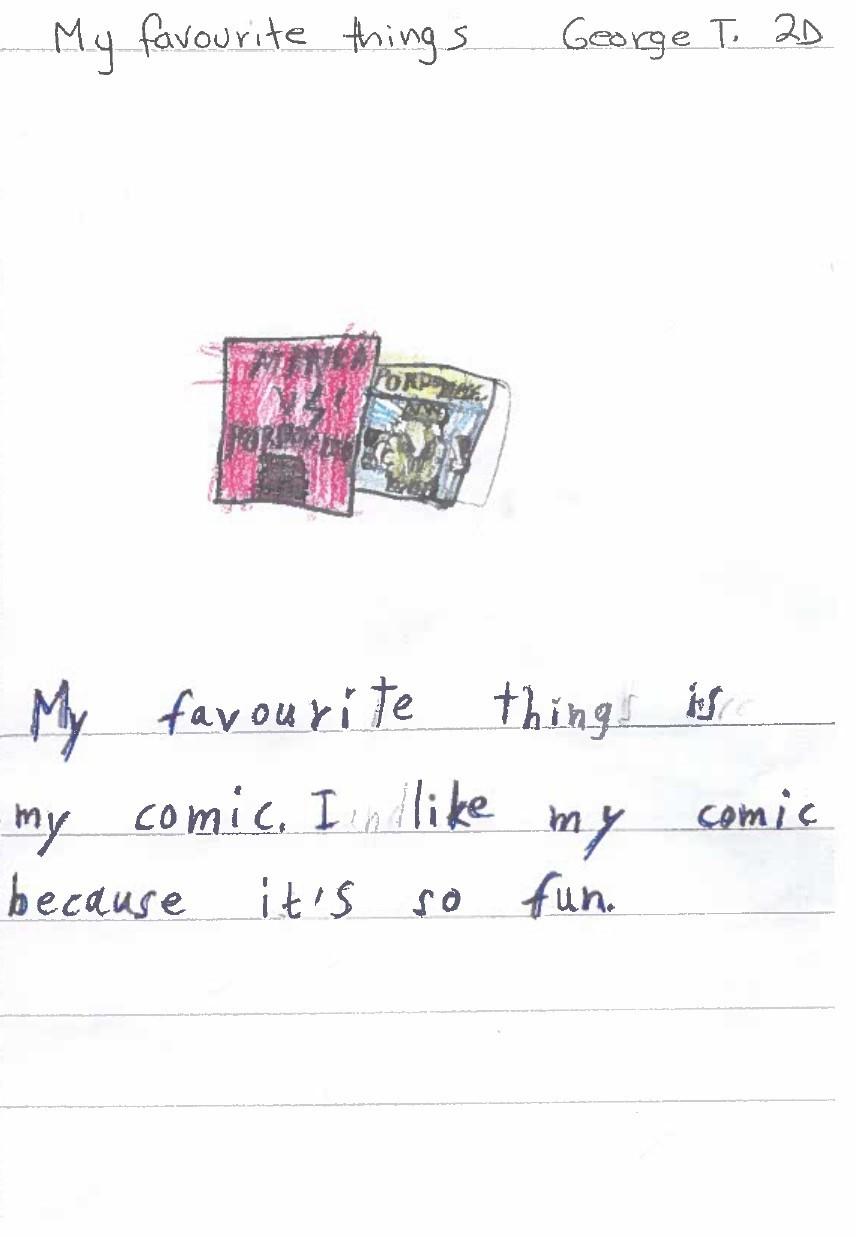 My favourite things George T. 2D
VS
My favourite thing is
my comic. I like my comic
because it's so fun.